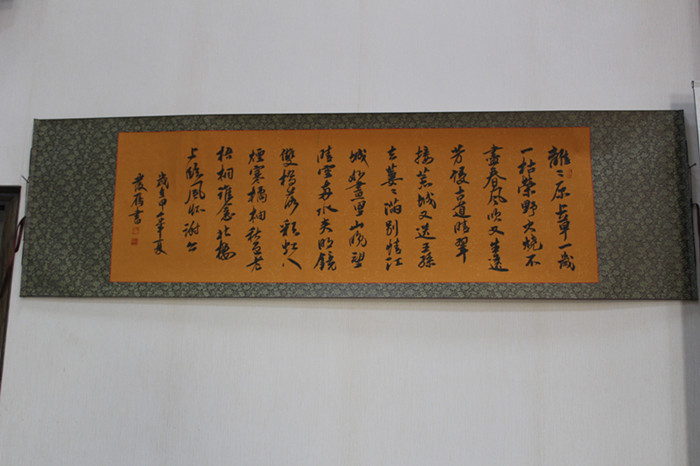 離〻原上草一歲
一枯榮野火燒不
盡春風吹又生遠
芳侵古道晴翠
接荒城又送王孫
去萋〻滿別情江
城如畫里山晚望
晴空兩水夾明鏡
雙橋落彩虹人
煙寒橘柚秋色老
梧桐誰念北樓
上臨風懷謝公
歲在甲午年夏
書